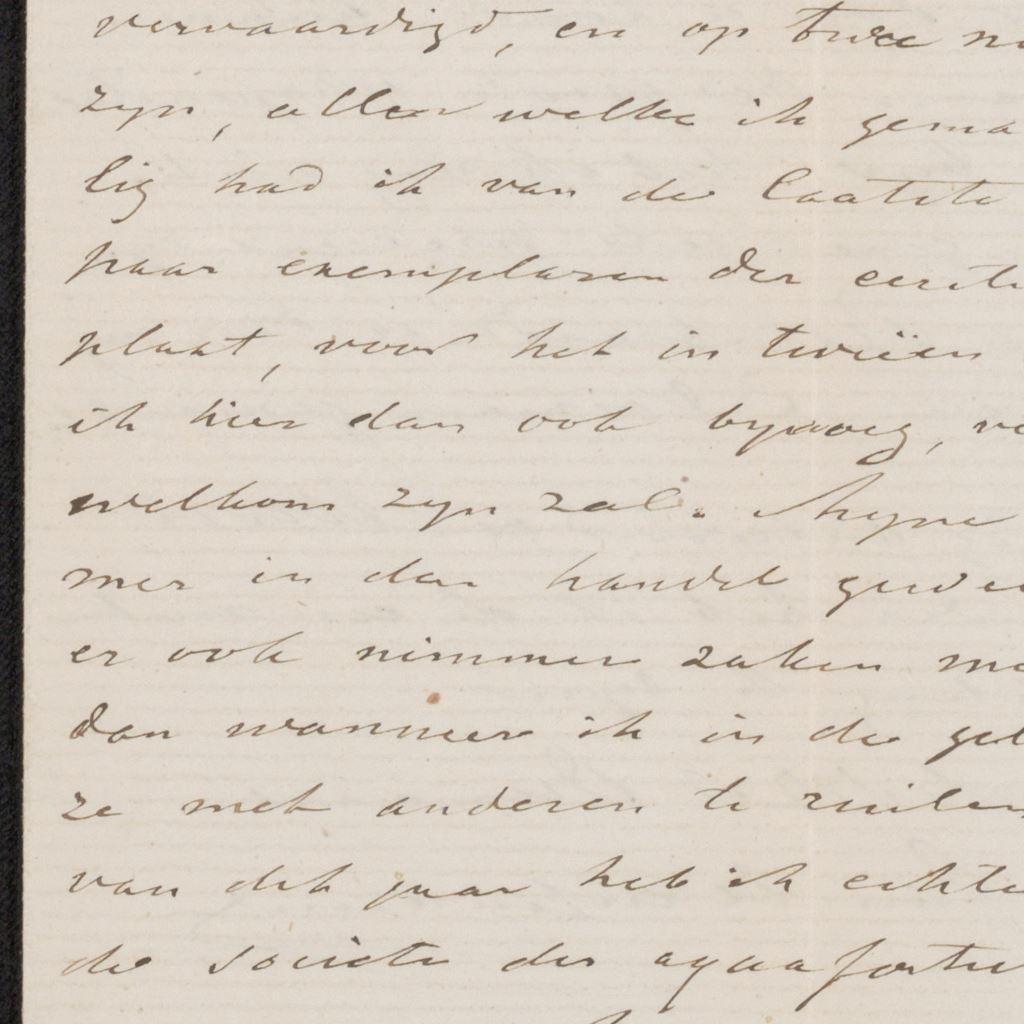 vervaardigd, en op twee na
zyn, allen welke ik gema
lig had ik van de laatste
paar exemplaren der eerste
plaat, voor het in tweeën
ik hier dan ook byvoeg, ve
welkom zyn zal. Myne
mer in den handel gewee
er ook nimmer zaken me
dan wanneer ik in de gel
ze met anderen te ruilen
van dit jaar heb ik echte
de societe des aquafortis